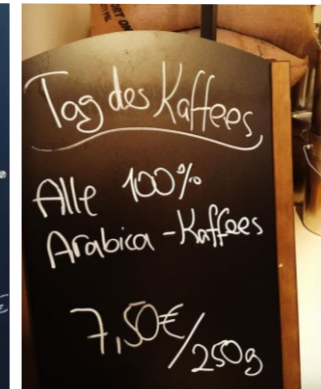 Tag des Kaffees
Alle 100%
Arabica-Kaffees
7,50€/250g